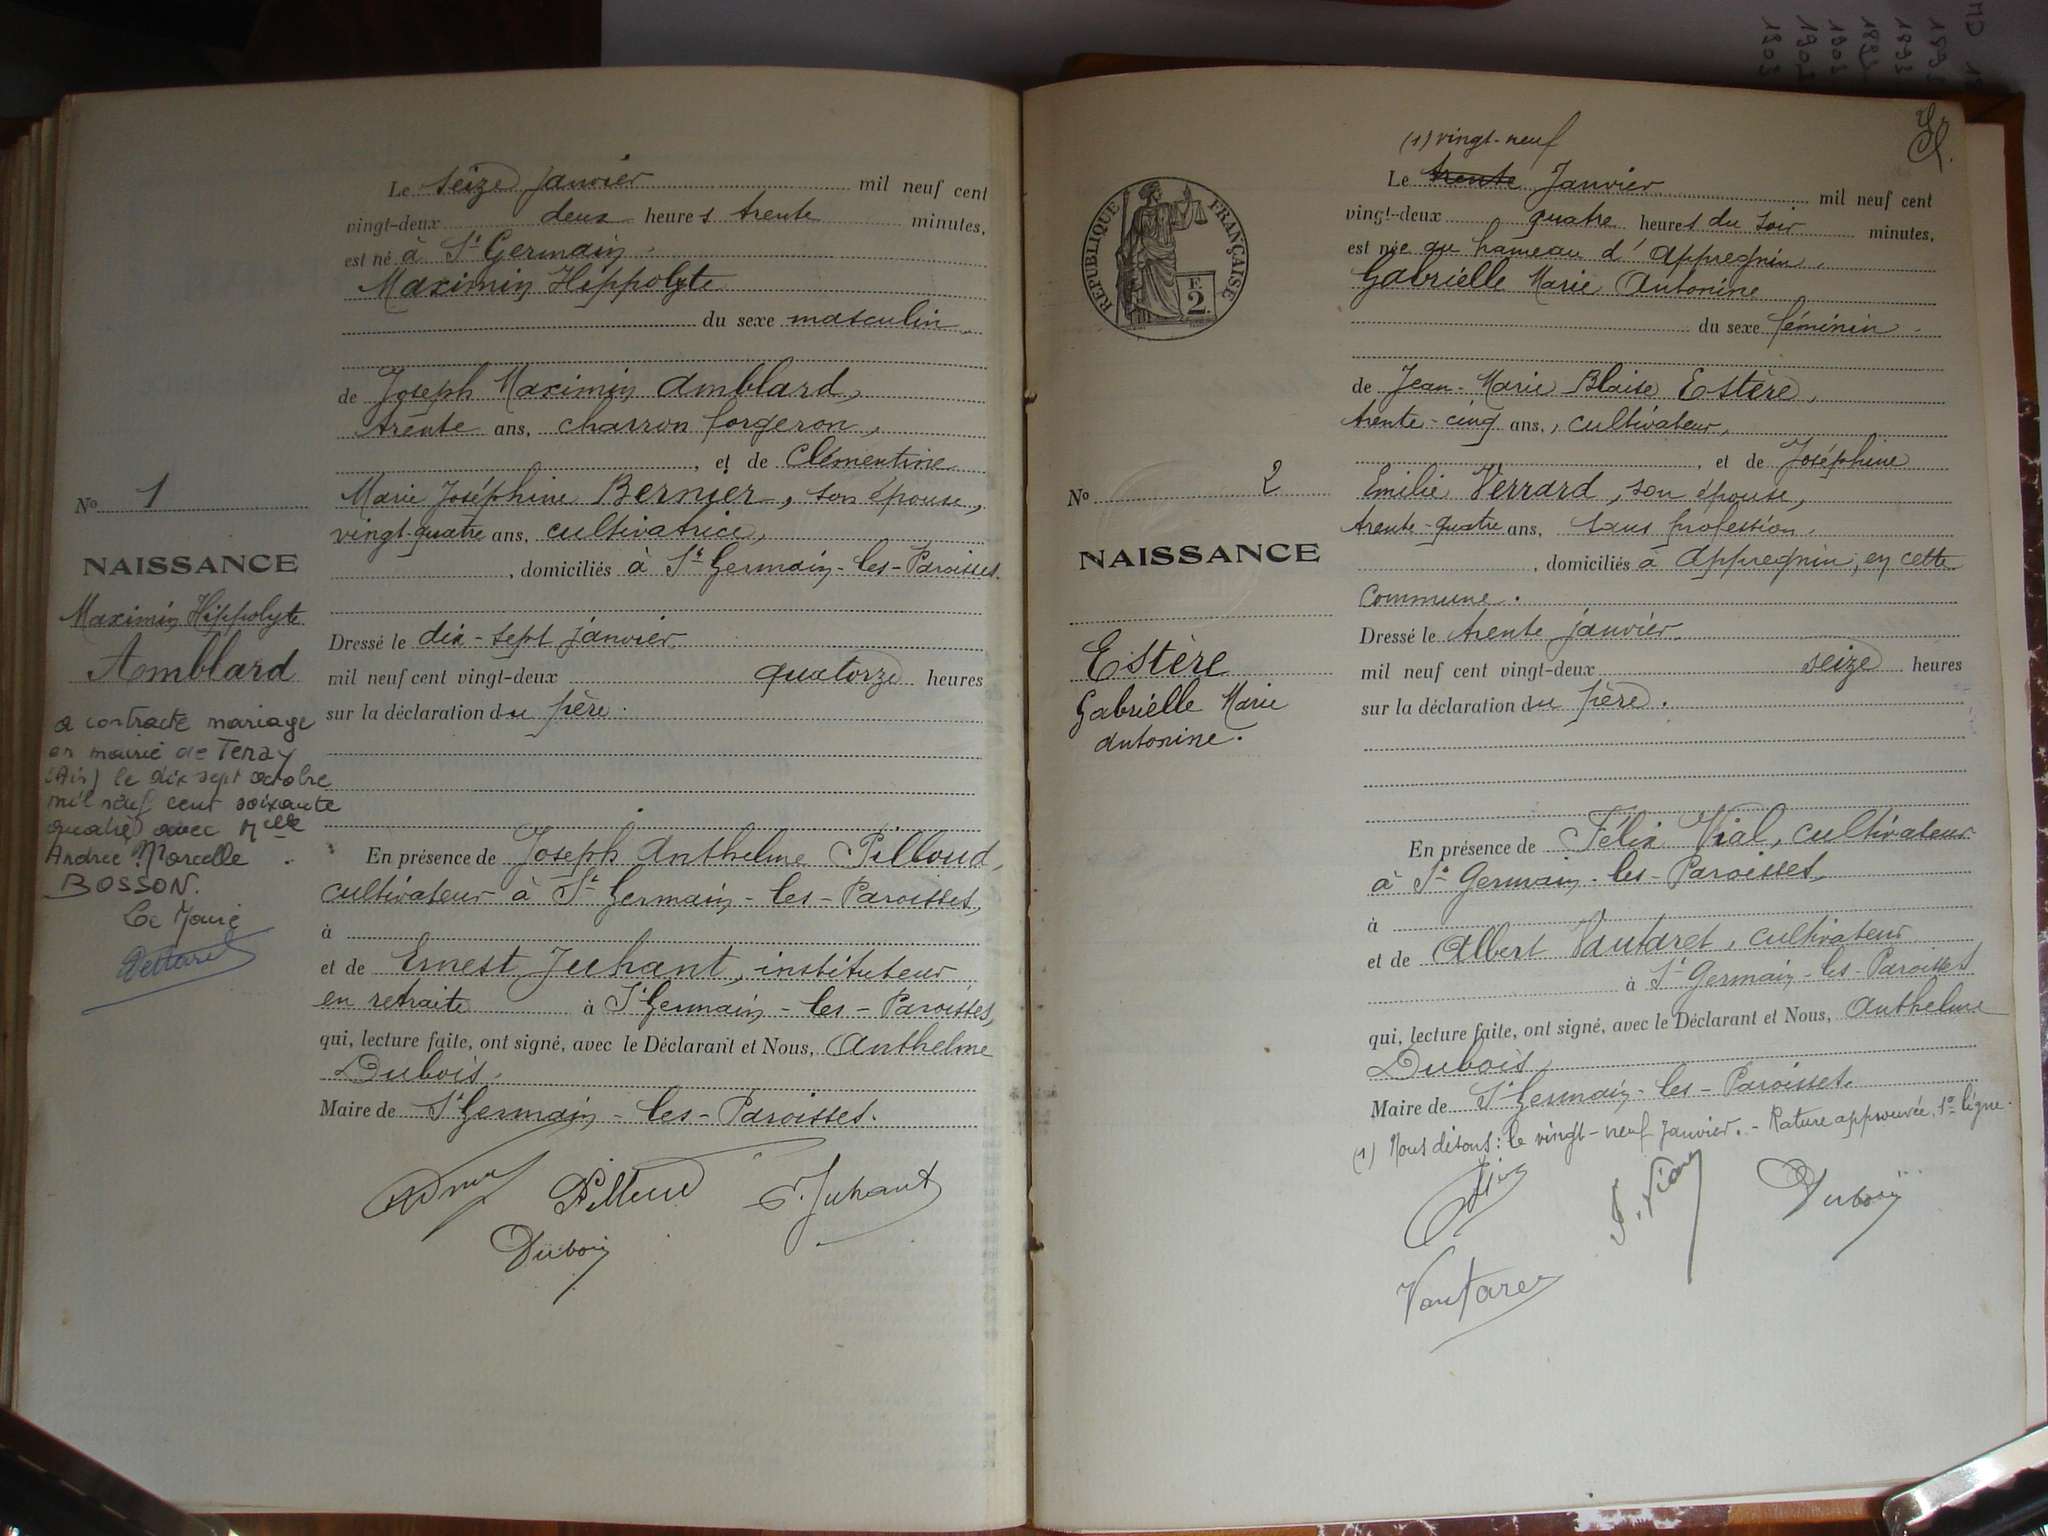 Le seize janvier mil neuf cent
vingt-deux deux heures trente minutes,
est né à St Germain.
Maximin Hippolyte
du sexe masculin
de Joseph Maximin Amblard,
trente ans, charron forgeron,
, et de Clémentine
Marie Joséphine Bernier, son épouse,
vingt-quatre ans, cultivatrice,
, domiciliés à St Germain-les-Paroisses.
Dressé le dix-sept janvier
mil neuf cent vingt-deux quatorze heures
sur la déclaration du père.
En présence de Joseph Anthelme Pilloud,
cultivateur à St Germain-les-Paroisses,
à
et de Ernest Juhant, instituteur
en retraite à St Germain-les-Paroisses,
qui, lecture faite, ont signé, avec le Déclarant et Nous, Anthelme
Dubois.
Maire de St Germain-les-Paroisses.
Pilloud
E. Juhant
Dubois
No 1
NAISSANCE
Maximin Hippolyte
Amblard
a contracté mariage
en mairie de Tenay
(Ain) le dix sept octobre
mil neuf cent soixante
quatre avec Mlle
Andrée Marcelle
BOSSON.
Le Maire
(1) vingt-neuf
Le trente Janvier mil neuf cent
vingt-deux quatre heures du soir minutes,
est née au hameau d'Appregnin.
Gabrielle Marie Antonine
du sexe féminin.
de Jean-Marie Blaise Estère,
trente-cinq ans, cultivateur,
, et de Joséphine
Emilie Verrard, son épouse,
trente-quatre ans, sans profession.
, domiciliés à Appregnin, en cette
Commune.
Dressé le trente janvier
mil neuf cent vingt-deux seize heures
sur la déclaration du père.
En présence de Félix Vial, cultivateur
à St Germain-les-Paroisses,
à
et de Albert Vautaret, cultivateur
à St Germain-les-Paroisses
qui, lecture faite, ont signé, avec le Déclarant et Nous, Anthelme
Dubois
Maire de St Germain-les-Paroisses.
(1) Nous disons: le vingt-neuf janvier. - Rature approuvée, 1e ligne.
F. Vial
Dubois
Vautaret
RÉPUBLIQUE FRANÇAISE
F.
2
No 2
NAISSANCE
Estère
Gabrielle Marie
Antonine.